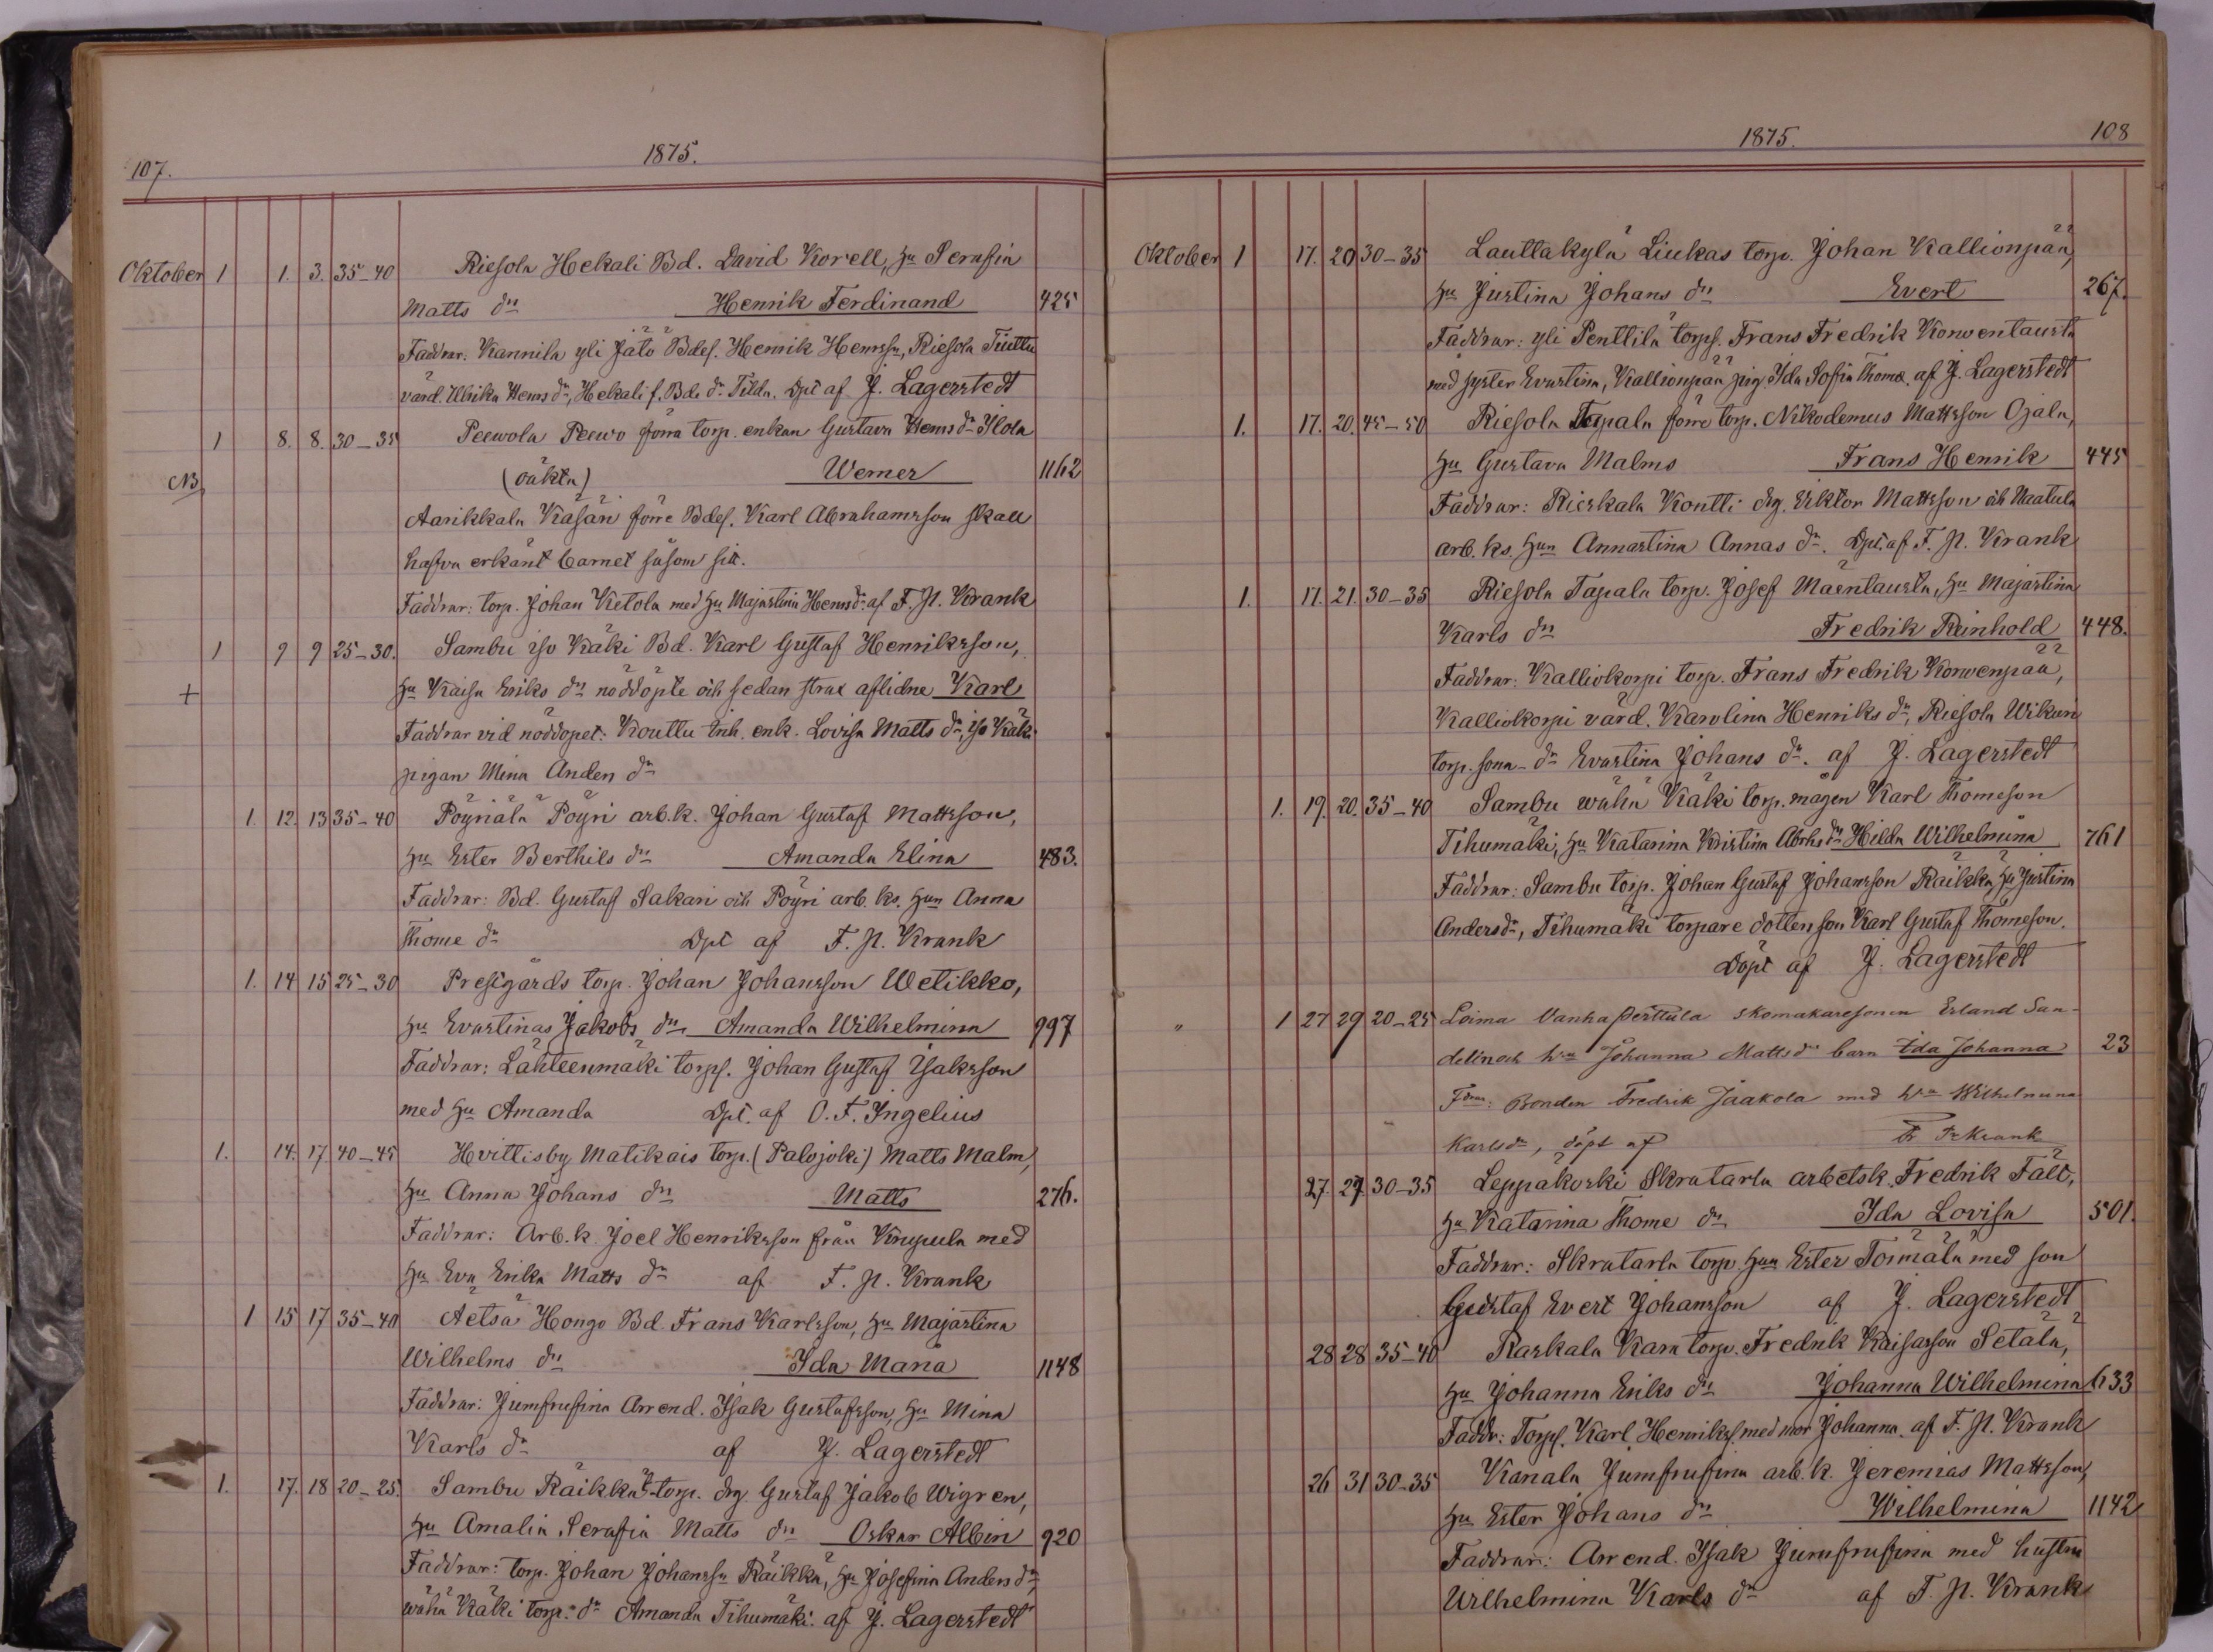 107.
1875.
Oktober 1 1. 3. 35-40 Riesola Hekali Bd. David Korell, hu Serafia
Matts dr Henrik Ferdinand 425
Faddrar: Kannila yli Jätö Bdes. Henrik Henrssn, Riesola Tiuttu
värd. Ulrika Henrs dr, Hekali f. Bde dr Tilda. Dpt af J. Lagerstedt
1 8. 8. 30-35 Peewola Peewo förra torp. enkan Gustava Henrs dr Ylola
NB (oäkta) Werner 1162
Aarikkala Käsäri förre Bdes. Karl Abrahamsson skall
hafva erkänt barnet såsom sitt.
Faddrar: torp. Johan Kietola med hu Majastina Henrs dr af F. N. Krank
1 9 9 25-30. Sambu iso Käki Bd. Karl Gustaf Henriksson,
+ hu Kaisa Eriks dr nöddöpte och sedan strax aflidne Karl
Faddrar vid nöddopet: Kouttu inh. enk. Lovisa Matts dr, iso Käki
pigan Mina Anders dr
1. 12. 13 35-40 Pöyriälä Pöyri arb.k. Johan Gustaf Mattsson,
hu Ester Berthils dr Amanda Elina 483.
Faddrar: Bd. Gustaf Sakari och Pöyri arb. ks. hun Anna
Thome dr Dpt af F. N. Krank
1. 14 15 25-30 Prestgårds torp. Johan Johansson Wetikko,
hu Evastinas Jakobs dr Amanda Wilhelmina 997
Faddrar: Lähteenmäki torps. Johan Gustaf Isaksson
med hu Amanda Dpt. af O. F. Ingelius
1. 14. 17 40-45 Hvittisby Matikais torp. (Palojoki) Matts Malm,
hu Anna Johans dr Matts 276.
Faddrar: Arb.k. Joel Henriksson från Knupula med
hu Eva Erika Matts dr af F. N. Krank
1 15 17 35-40 Aetsä Hongo Bd. Frans Karlsson, hu Majastina
Wilhelms dr Ida Maria 1148
Faddrar: Jumfrufinn Arrend. Isak Gustafsson, hu Mina
Karls dr af J. Lagerstedt
1. 17. 18 20-25. Sambu Räikkä torp. drg Gustaf Jakob Wigren,
hu Amalia Serafia Matts dr Oskar Albin 920
Faddrar: torp. Johan Johanssn Räikkä, hu Josefina Anders dr,
wähä Käki torp. dr Amanda Tihumäki. af J. Lagerstedt
1875.
108
Oktober 1 17. 20 30-35 Lauttakylä Liukas torp. Johan Kallionpää,
hu Justina Johans dr Evert 267.
Faddrar: yli Penttilä torps. Frans Fredrik Korwentausta
med syster Evastina, Kallionpää pig. Ida Sofia Thome. af J. Lagerstedt
1. 17. 20. 45-50 Riesola Tapala förre torp. Nikodemus Mattsson Ojala,
hu Gustava Malms Frans Henrik 445
Faddrar: Rieskala Kontti drg. Viktor Mattsson och Naatula
arb. ks. hun Annastina Annas dr. Dpt. af F. N. Krank
1. 17. 21. 30-35 Riesola Tapala torp. Josef Mäentausta, hu Majastina
Karls dr Fredrik Reinhold 448.
Faddrar: Kalliokorpi torp. Frans Fredrik Korwenpää,
Kalliokorpi värd. Karolina Henriks dr, Riesola Wikari
torp. sona-dr Evastina Johans dr. af J. Lagerstedt
1. 19. 20. 35-40 Sambu wähä Käki torp. mågen Karl Thomeson
Tihumäki, hu Katarina Kristina Abrhs dr Hilda Wilhelmina 761
Faddrar: Sambu torp. Johan Gustaf Johansson Räikkä, hu Justina
Anders dr, Tihumäki torpare dotterson Karl Gustaf Thomeson.
Döpt af J. Lagerstedt
" 1 27 29 20-25 Loima Vanhapertttula skomakaresonen Erland San-
delin och hru Johanna Matts dr barn Ida Johanna 23
Fdrar: Bonden Fredrik Jaakola med hru Wilhelmina
Karlsdr, döpt af Fr Krank
27. 29. 30-35 Leppäkoski Skratarla arbetsk. Fredrik Fält,
hu Katarina Thome dr Ida Lovisa 501.
Faddrar: Skratarla torp. hun Ester Toimäla med son
Gustaf Evert Johansson af J. Lagerstedt
28 28 35-40 Raskala Kara torp. Fredrik Kaisasson Setälä,
hu Johanna Eriks dr Johanna Wilhelmina 633
Faddr: Torps. Karl Henrikss. med mor Johanna. af F. N. Krank
26 31 30-35 Kanala Jumfrufinn arb.k. Jeremias Mattsson,
hu Ester Johans dr Wilhelmina 1142
Faddrar: Arrend. Isak Jumfrufinn med hustru
Wilhelmina Karls dr af F. N. Krank